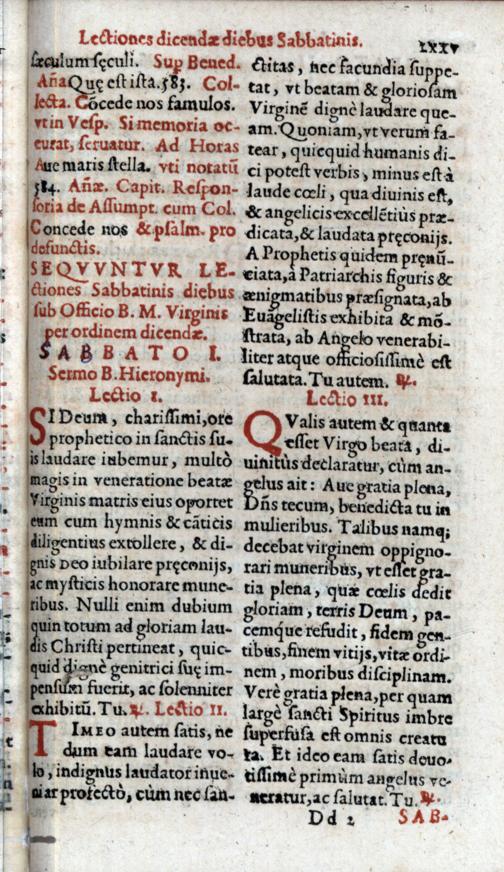 Lectiones dicendæ diebus Sabbatinis.
LXXV
sæculum sęculi. Sup Bened.
Aña Quę est ista. 583. Col-
lecta. Cōcede nos famulos.
vt in Vesp. Si memoria oc-
curat, seruatur. Ad Horas
Aue maris stella. vti notatū
584. Añæ. Capit. Respon-
soria de Assumpt. cum Col.
Concede nos & psalm. pro
defunctis.
SEQVVNTVR LE-
ctiones Sabbatinis diebus
sub Officio B. M. Virginis
per ordinem dicendæ.
SABBATO I.
Sermo B. Hieronymi.
Lectio I.
SI Deum, charissimi, ore
prophetico in sanctis su-
is laudare iubemur, multò
magis in veneratione beatæ
Virginis matris eius oportet
eum cum hymnis & cāticis
diligentius extollere, & di-
gnis DEO iubilare pręconijs,
ac mysticis honorare mune-
ribus. Nulli enim dubium
quin totum ad gloriam lau-
dis Christi pertineat, quic-
quid dignè genitrici suę im-
pensum fuerit, ac solenniter
exhibitū. Tu. ℟. Lectio II.
TIMEO autem satis, ne
dum eam laudare vo-
lo, indignus laudator inue-
niar profectò, cùm nec san-
ctitas, nec facundia suppe-
tat, vt beatam & gloriosam
Virginē dignè laudare que-
am. Quoniam, vt verum fa-
tear, quicquid humanis di-
ci potest verbis, minus est à
laude cœli, qua diuinis est,
& angelicis excellētiùs præ-
dicata, & laudata pręconijs.
A Prophetis quidem pręnū-
ciata, à Patriarchis figuris &
ænigmatibus præsignata, ab
Euāgelistis exhibita & mō-
strata, ab Angelo venerabi-
liter atque officiosissimè est
salutata. Tu autem. ℟.
Lectio III.
QValis autem & quanta
esset Virgo beata, di-
uinitùs declaratur, cùm an-
gelus ait: Aue gratia plena,
Dñs tecum, benedicta tu in
mulieribus. Talibus namq;
decebat virginem oppigno-
rari muneribus, vt esset gra-
tia plena, quæ cœlis dedit
gloriam, terris Deum, pa-
cemque refudit, fidem gen-
tibus, finem vitijs, vitæ ordi-
nem, moribus disciplinam.
Verè gratia plena, per quam
largè sancti Spiritus imbre
superfusa est omnis creatu
ra. Et ideo eam satis deuo-
tissimè primùm angelus ve-
neratur, ac salutat. Tu. ℟.
Dd 2
SAB-